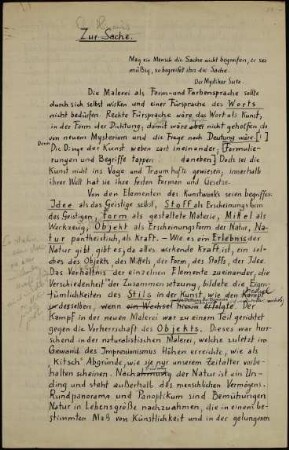 Zur Sache.
Mag ein Mensch die Sache nicht begreifen, er sei
müßig, so begreifet doch die Sache.
Der Mystiker Suso.
Die Malerei als Form- und Farbensprache sollte
durch sich selbst wirken und einer Fürsprache des Worts
nicht bedürfen. Rechte Fürsprache wäre das Wort als Kunst,
in der Form der Dichtung, damit wäre aber nicht geholfen
neuen Mysterium und die Frage nach Deutung wär
Die Dinge der Kunst weben zart ineinander, Formulie-
rungen und Begriffe tappen daneben. Doch sei die
Kunst nicht ins Vage und Traumhafte gewiesen, innerhalb
ihrer Welt hat sie ihre festen Formen und Gesetze.
Von den Elementen des Kunstwerks seien begriffen:
Idee als das Geistige selbst, Stoff als Erscheinungsform
des Geistigen, Form als gestaltete Materie, Mittel als
Werkzeug, Objekt als Erscheinungsform der Natur, Natur
pantheistisch, als Kraft. — Wie es ein Erlebnis der
Natur gibt, gibt es, da alles wirkende Kraft ist, ein sol-
ches des Objekts, des Mittels, der Form, des Stoffs, der Idee.
Das Verhältnis der einzelnen Elemente zueinander, die
Verschiedenheit der Zusammensetzung, bildete die Eigen-
tümlichkeiten des Stils in der Kunst, wie den Kampf
derselben, wenn
Kampf in der neuen Malerei war zu einem Teil gerichtet
gegen die Vorherrschaft des Objekts. Dieses war herr-
schend in der naturalistischen Malerei, welche zuletzt im
Gewand des Impressionismus Höhen erreichte, wie als
"Kitsch" Abgründe, wie sie nur unserem Zeitalter vorbe-
halten scheinen. Nachahmung der Natur ist ein Un-
ding und steht außerhalb des menschlichen Vermögens.
Rundpanorama und Panoptikum sind Bemühungen,
Natur in Lebensgröße nachzuahmen, die in einem be-
stimmten Maß von Künstlichkeit und in der gelungenen